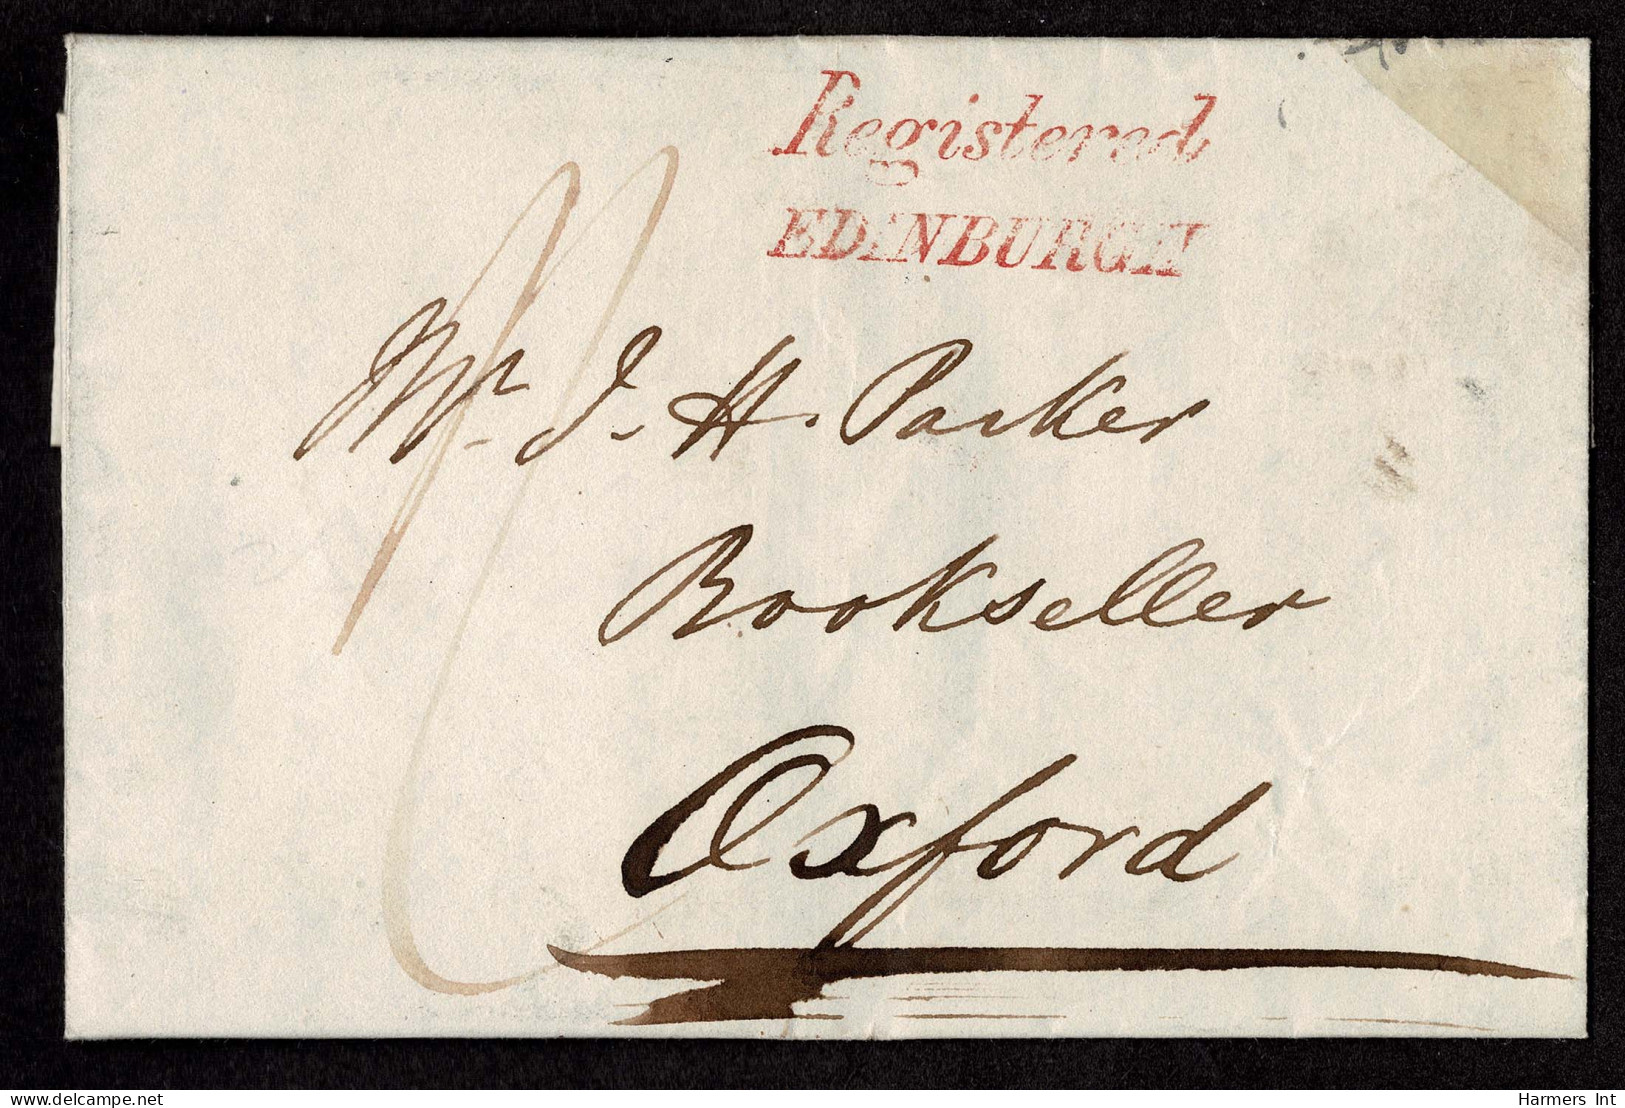 Registered
EDINBURGH
Mr. J. H. Parker
Bookseller
Oxford
delcampe.net
Harmers Int